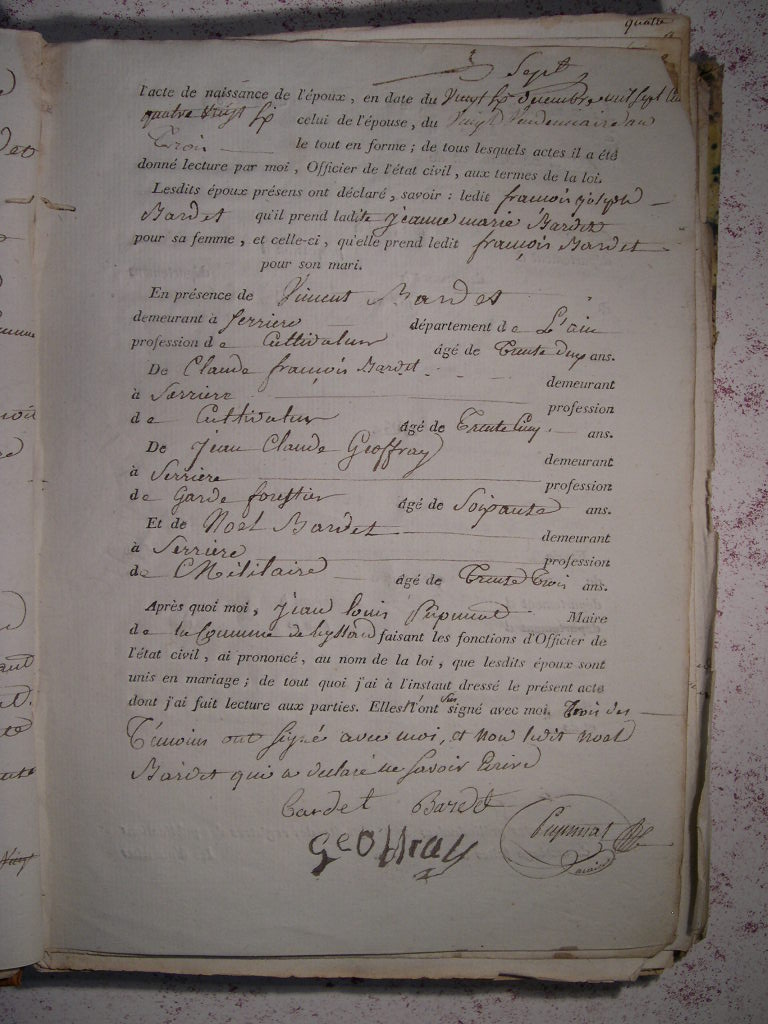 quatre
Sept
l'acte de naissance de l'époux, en date du vingt six décembre mil sept cent
quatre vingt six celui de l'épouse, du vingt vendemiaire an
trois le tout en forme ; de tous lesquels actes il a été
donné lecture par moi, Officier de l'état civil, aux termes de la loi.
Lesdits époux présens ont déclaré, savoir : ledit françois joseph
Bardet qu'il prend ladite jeanne marie Bardet
pour sa femme, et celle-ci, qu'elle prend ledit françois Bardet
pour son mari.
En présence de Vincent Bardet
demeurant à Serriere département de L'ain
profession de Cultivateur âgé de Trente deux ans.
De Claude françois Bardet demeurant
à Serriere profession
de Cultivateur âgé de Trente Cinq ans.
De Jean Claude Geoffray demeurant
à Serriere profession
de Garde forestier âgé de Soixante ans.
Et de Noël Bardet demeurant
à Serriere profession
de Militaire âgé de Trente Trois ans.
Après quoi moi, Jean louis Maire
de la Commune de faisant les fonctions d'Officier de
l'état civil, ai prononcé, au nom de la loi, que lesdits époux sont
unis en mariage ; de tout quoi j'ai à l'instant dressé le présent acte
dont j'ai fait lecture aux parties. Elles n'ont signé avec moi. Trois des
Témoins ont signé avec moi, et non ledit noel
Bardet qui a declaré ne savoir Ecrire
Bardet Bardet
Geoffray